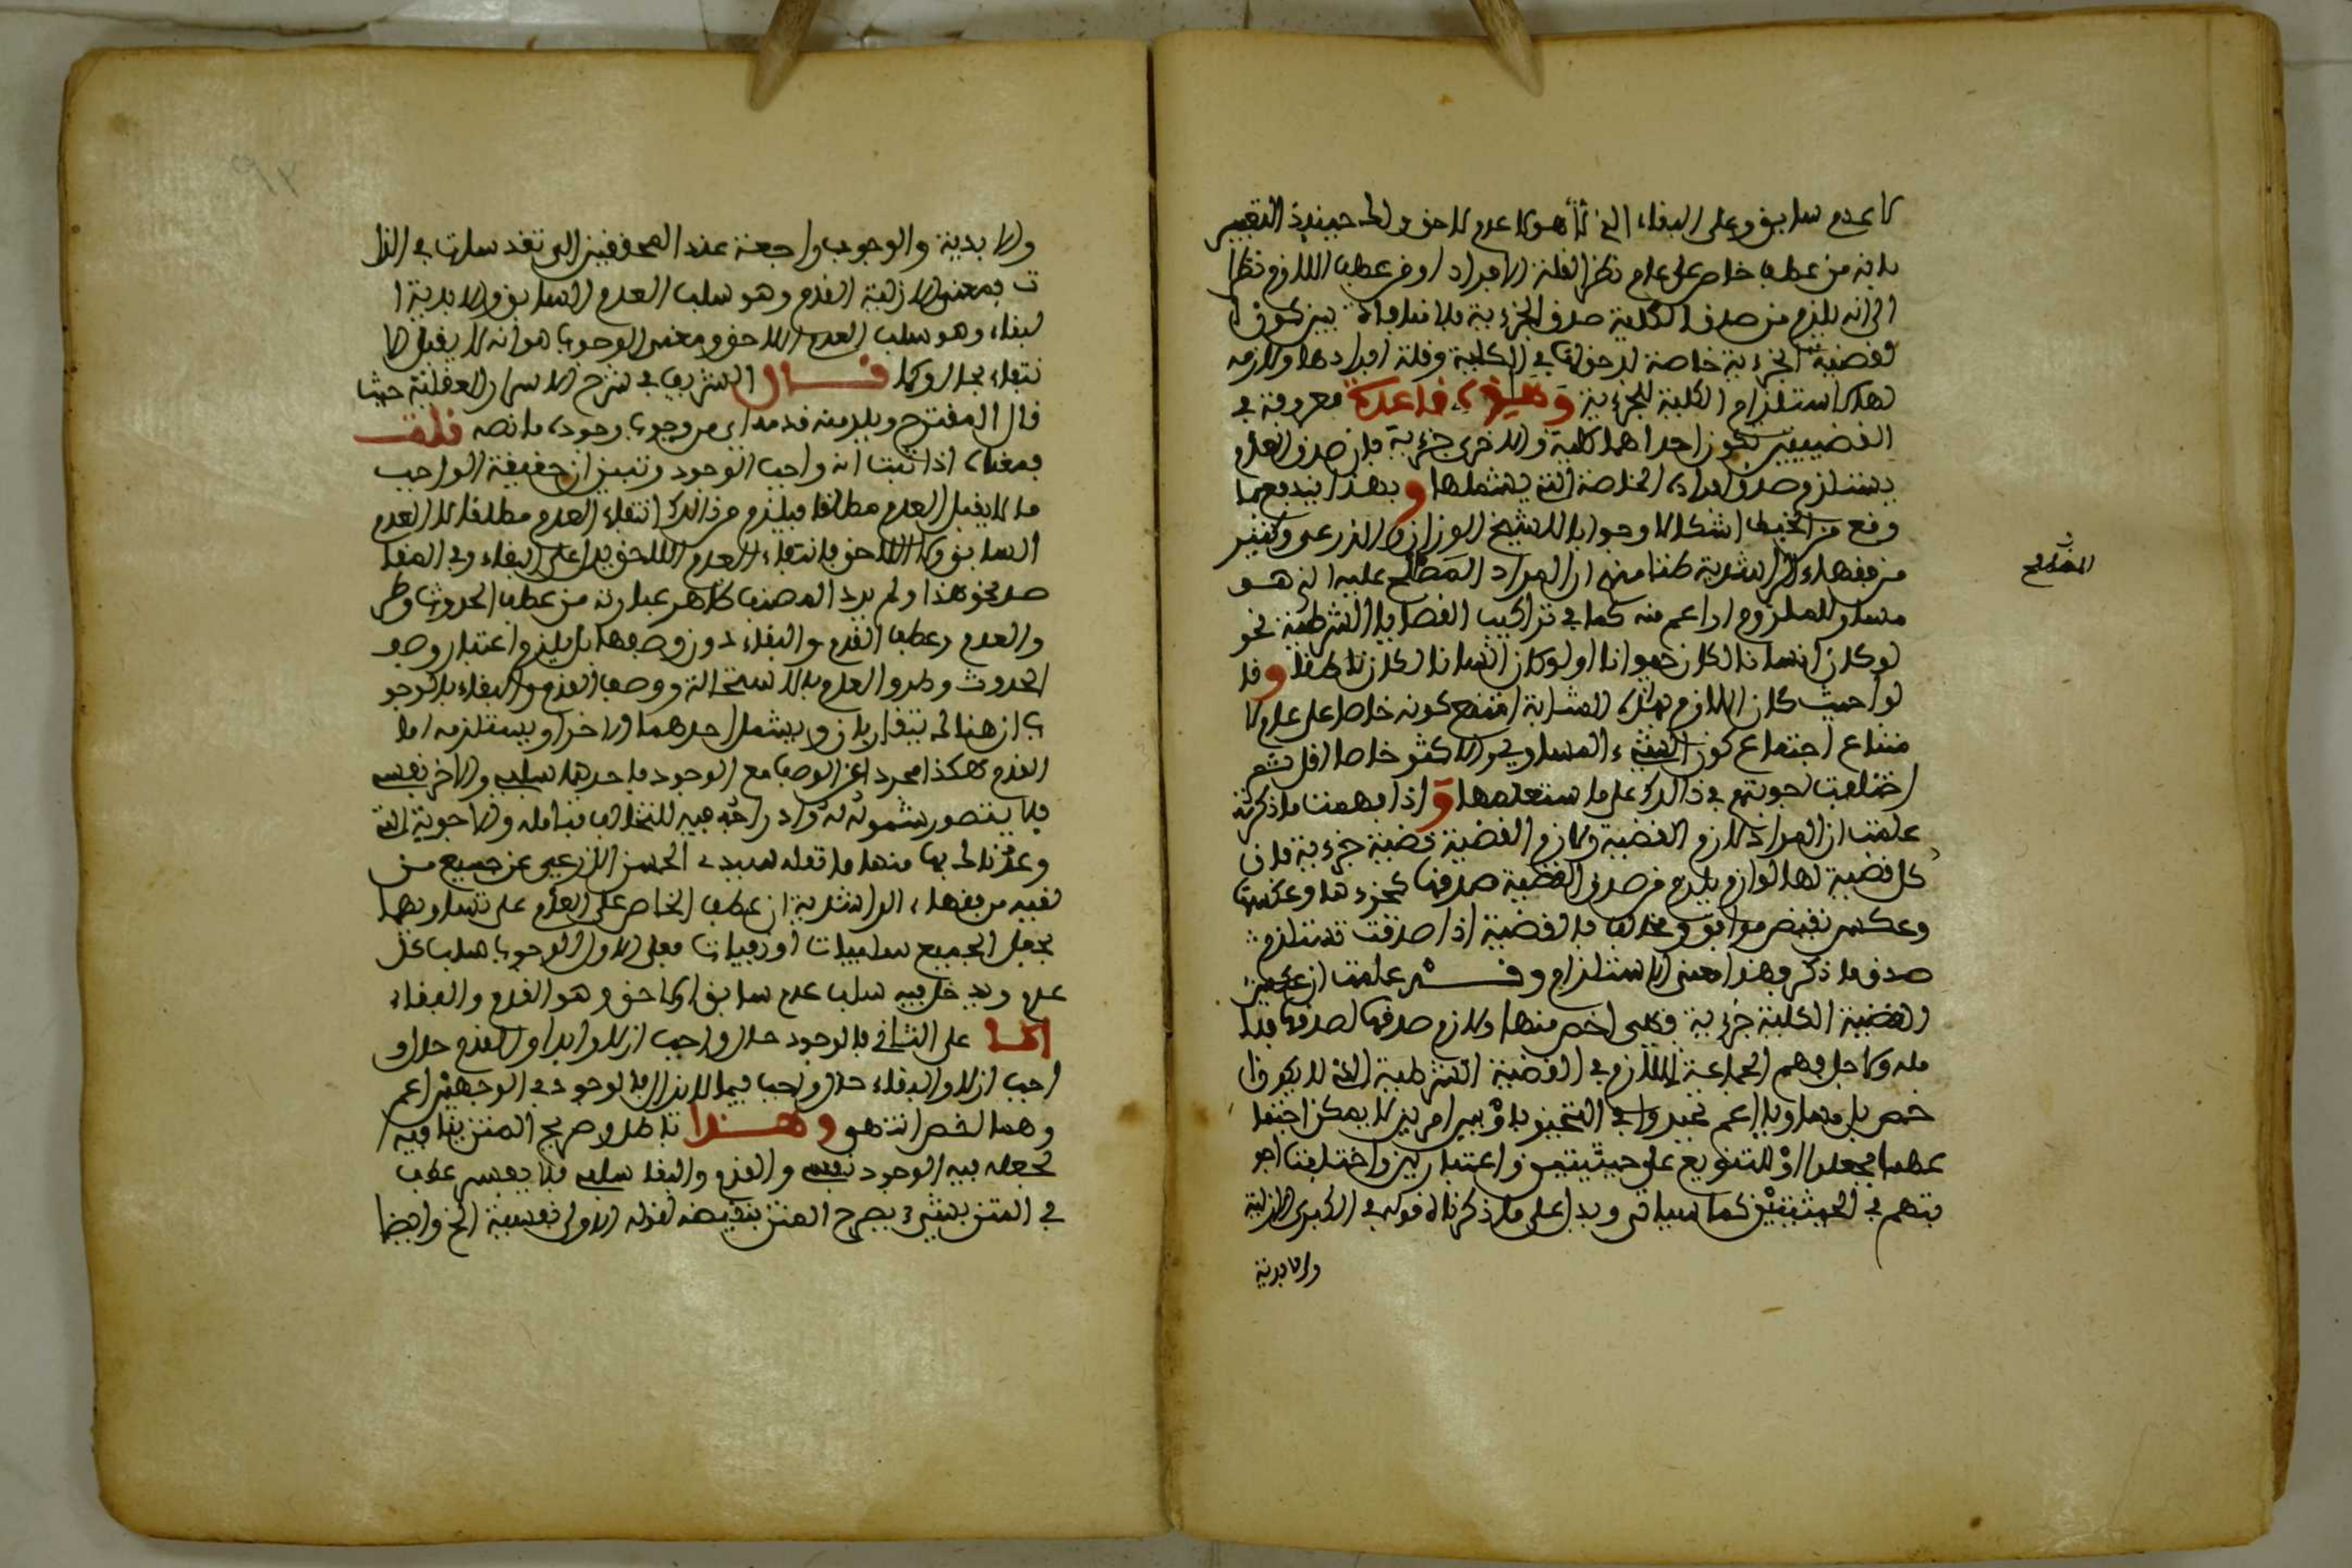 لا عدم سابق وعلى البقاء الذي هو لا عدم لاحق ولك حينئذ التعبير
بانه من عطف خاص على عام نظرا لقلة الافراد او من عطف اللازم نظرا
الى انه يلزم من صدق الكلية صدق الجزءية فلا منافاة بين كون ا
لقضية الجزءية خاصة لدخولها في الكلية وقلة افرادها ولازمة
لها لاستلزام الكلية للجزءية وهذه قاعدة معروفة في
القضيتين تكون احداهما كلية والاخرى جزءية فان صدق العام
يستلزم صدق افراده الخاصة التي يشملها وبهذا يندفع ما
وقع من الخبط اشكالا وجوابا للشيخ الوزاني والدرعي وكثير
من فقهاء الراشدية ظنا منهم ان المراد المصطلح عليه الذي هو
اللازم
مساو للملزوم او اعم منه كما في تراكيب القضايا الشرطية نحو
لو كان انسانا لكان حيوانا او لو كان انسانا لكان ناطقا وقا
لوا حيث كان اللازم بهذه المثابة امتنع كونه خاصا على عام لا
متناع اجتماع كون الشيء المساوي او الاكثر خاصا اقل ثم
اختلفت اجوبتهم في ذالك على ما ستعلمها واذا فهمت ما ذكرته
علمت ان المراد لازم القضية ولازم القضية قضية جزءية فان
كل قضية لها لوازم يلزم من صدق القضية صدقها كجزءها وعكسها
وعكس نقيض موافق ومخالف فالقضية اذا صدقت تستلزم
صدق ما ذكر وهذا معنى الاستلزام وقد علمت ان عكس
القضية الكلية جزءية فهي اخص منها ولازم صدقها لصدقها فتا
مله ولاجل فهم الجماعة اللازم في القضية الشرطية الذي لا يكون ا
خص بل مساويا او اعم تحيروا في التعبير باو بين امرين لا يمكن اجتما
عهما فجعلوا او للتنويع على حيثيتين واعتبارين واختلفت اجو
بتهم في الحيثيتين كما سياتي ويدل على ما ذكرنا قوله في الكبرى الازلية
والابدية
والابدية والوجوب راجعة عند المحققين الى تقدسات في الذا
ت فمعنى الازلية القدم وهو سلب العدم السابق والابدية ا
لبقاء وهو سلب العدم اللاحق ومعنى الوجوب هو انه لا يقبل الا
نتفاء بحال وكما قال الشريف في شرح الاسرار العقلية حيث
قال المقترح ويلزمه قدمه اي من وجوب وجوده ما نصه قلت
فمعناه اذا ثبت انه واجب الوجود وتبين ان حقيقة الواجب
ما لا يقبل العدم مطلقا فيلزم من ذالك انتفاء العدم مطلقا لا العدم
السابق ولا اللاحق فانتفاء العدم اللاحق يدل على البقاء وفي المقا
صد نحو هذا ولم يرد المصنف كظاهر عبارته من عطف الحدوث وطر
والعدم وعطف القدم والبقاء دون وصفها بل يلزم اعتبار وصف
الحدوث وطرو العدم بالاستحالة ووصف القدم والبقاء بالوجو
ب اذ هنالك يتقاربان ويشمل احدهما الاخر او يستلزمه اما
القدم هكذا مجردا عن الوصف مع الوجود فاحدهما سلبي والاخر نفسي
فلا يتصور شموله له وادراجه فيه للتخالف فتامله والاجوبة التي
وعدناك بها منها ما نقله سيدي الحسن الدرعي عن جميع من
لقيه من فقهاء الراشدية ان عطف الخاص على العام على تساويهما
بجعل الجميع سلبيات او نفسيات فعلى الاول الوجوب سلب كل
عدم ويدخل فيه سلب عدم سابق ولاحق وهو القدم والبقاء
اما على الثاني فالوجود حال واجب ازلا وابدا والقدم حال و
اجب ازلا والبقاء حال واجب فيما لا يزال فالوجود في الوجهين اعم
وهما اخص انتهى وهذا باطل وصريح المتن ينافيه
لجعله فيه الوجود نفسي والقدم والبقا سلبي فلا يفسر عطف
في المتن بشيء يصرح المتن بنقيضه لقوله الاولى نفسية الخ وايضا